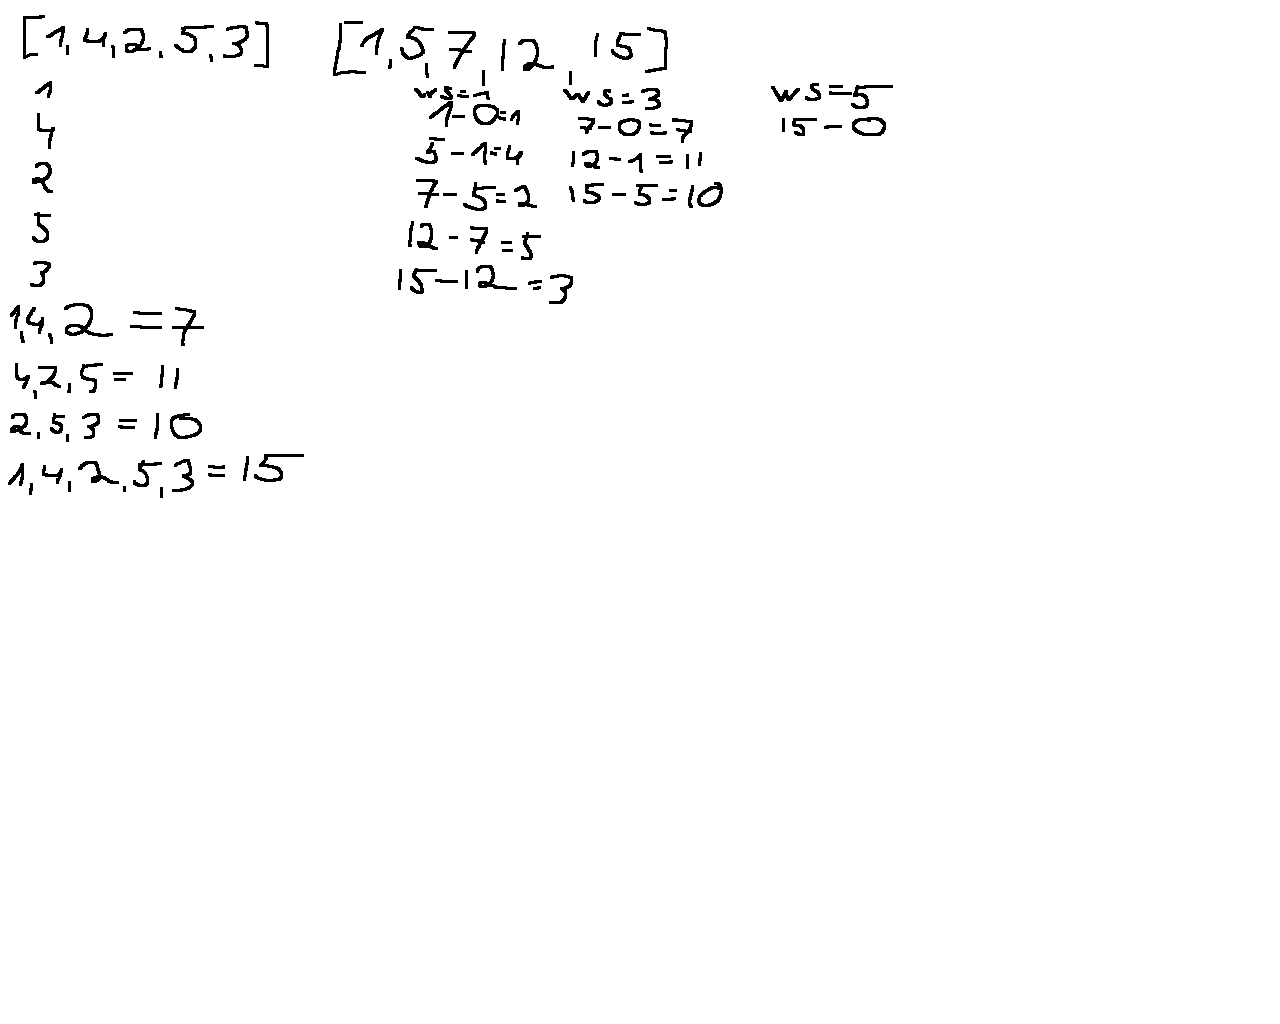 [1,4,2,5,3]
1
4
2
5
3
1,4,2=7
4,2,5=11
2,5,3=10
1,4,2,5,3=15
[1,5,7,12,15]
ws=1
1-0=1
5-1=4
7-5=2
12-7=5
15-12=3
ws=3
7-0=7
12-1=11
15-5=10
ws=5
15-0